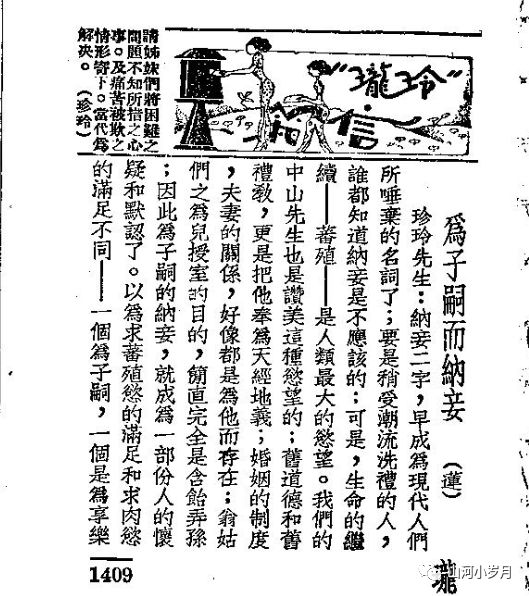 “玲瓏”
信箱
請姊妹們將困難之
問題不知所措之心
事。及痛苦被欺之
情形寄下。當代爲
解决。(珍玲)
爲子嗣而納妾 (蓮)
珍玲先生:納妾二字,早成爲現代人們
所唾棄的名詞了;要是稍受潮流洗禮的人,
誰都知道納妾是不應該的:可是,生命的繼
續——蕃殖——是人類最大的慾望。我們的
中山先生也是讚美這種慾望的:舊道德和舊
禮敎,更是把他奉爲天經地義;婚姻的制度
,夫妻的關係,好像都是為他而存在;翁姑
們之爲兒授室的目的,簡直完全是含飴弄孫
;因此爲子嗣的納妾,就成爲一部份人的懷
疑和默認了。以爲求蕃殖慾的滿足和求肉慾
的滿足不同——一個爲子嗣,一個是爲享樂
瓏
1409
山河小岁月